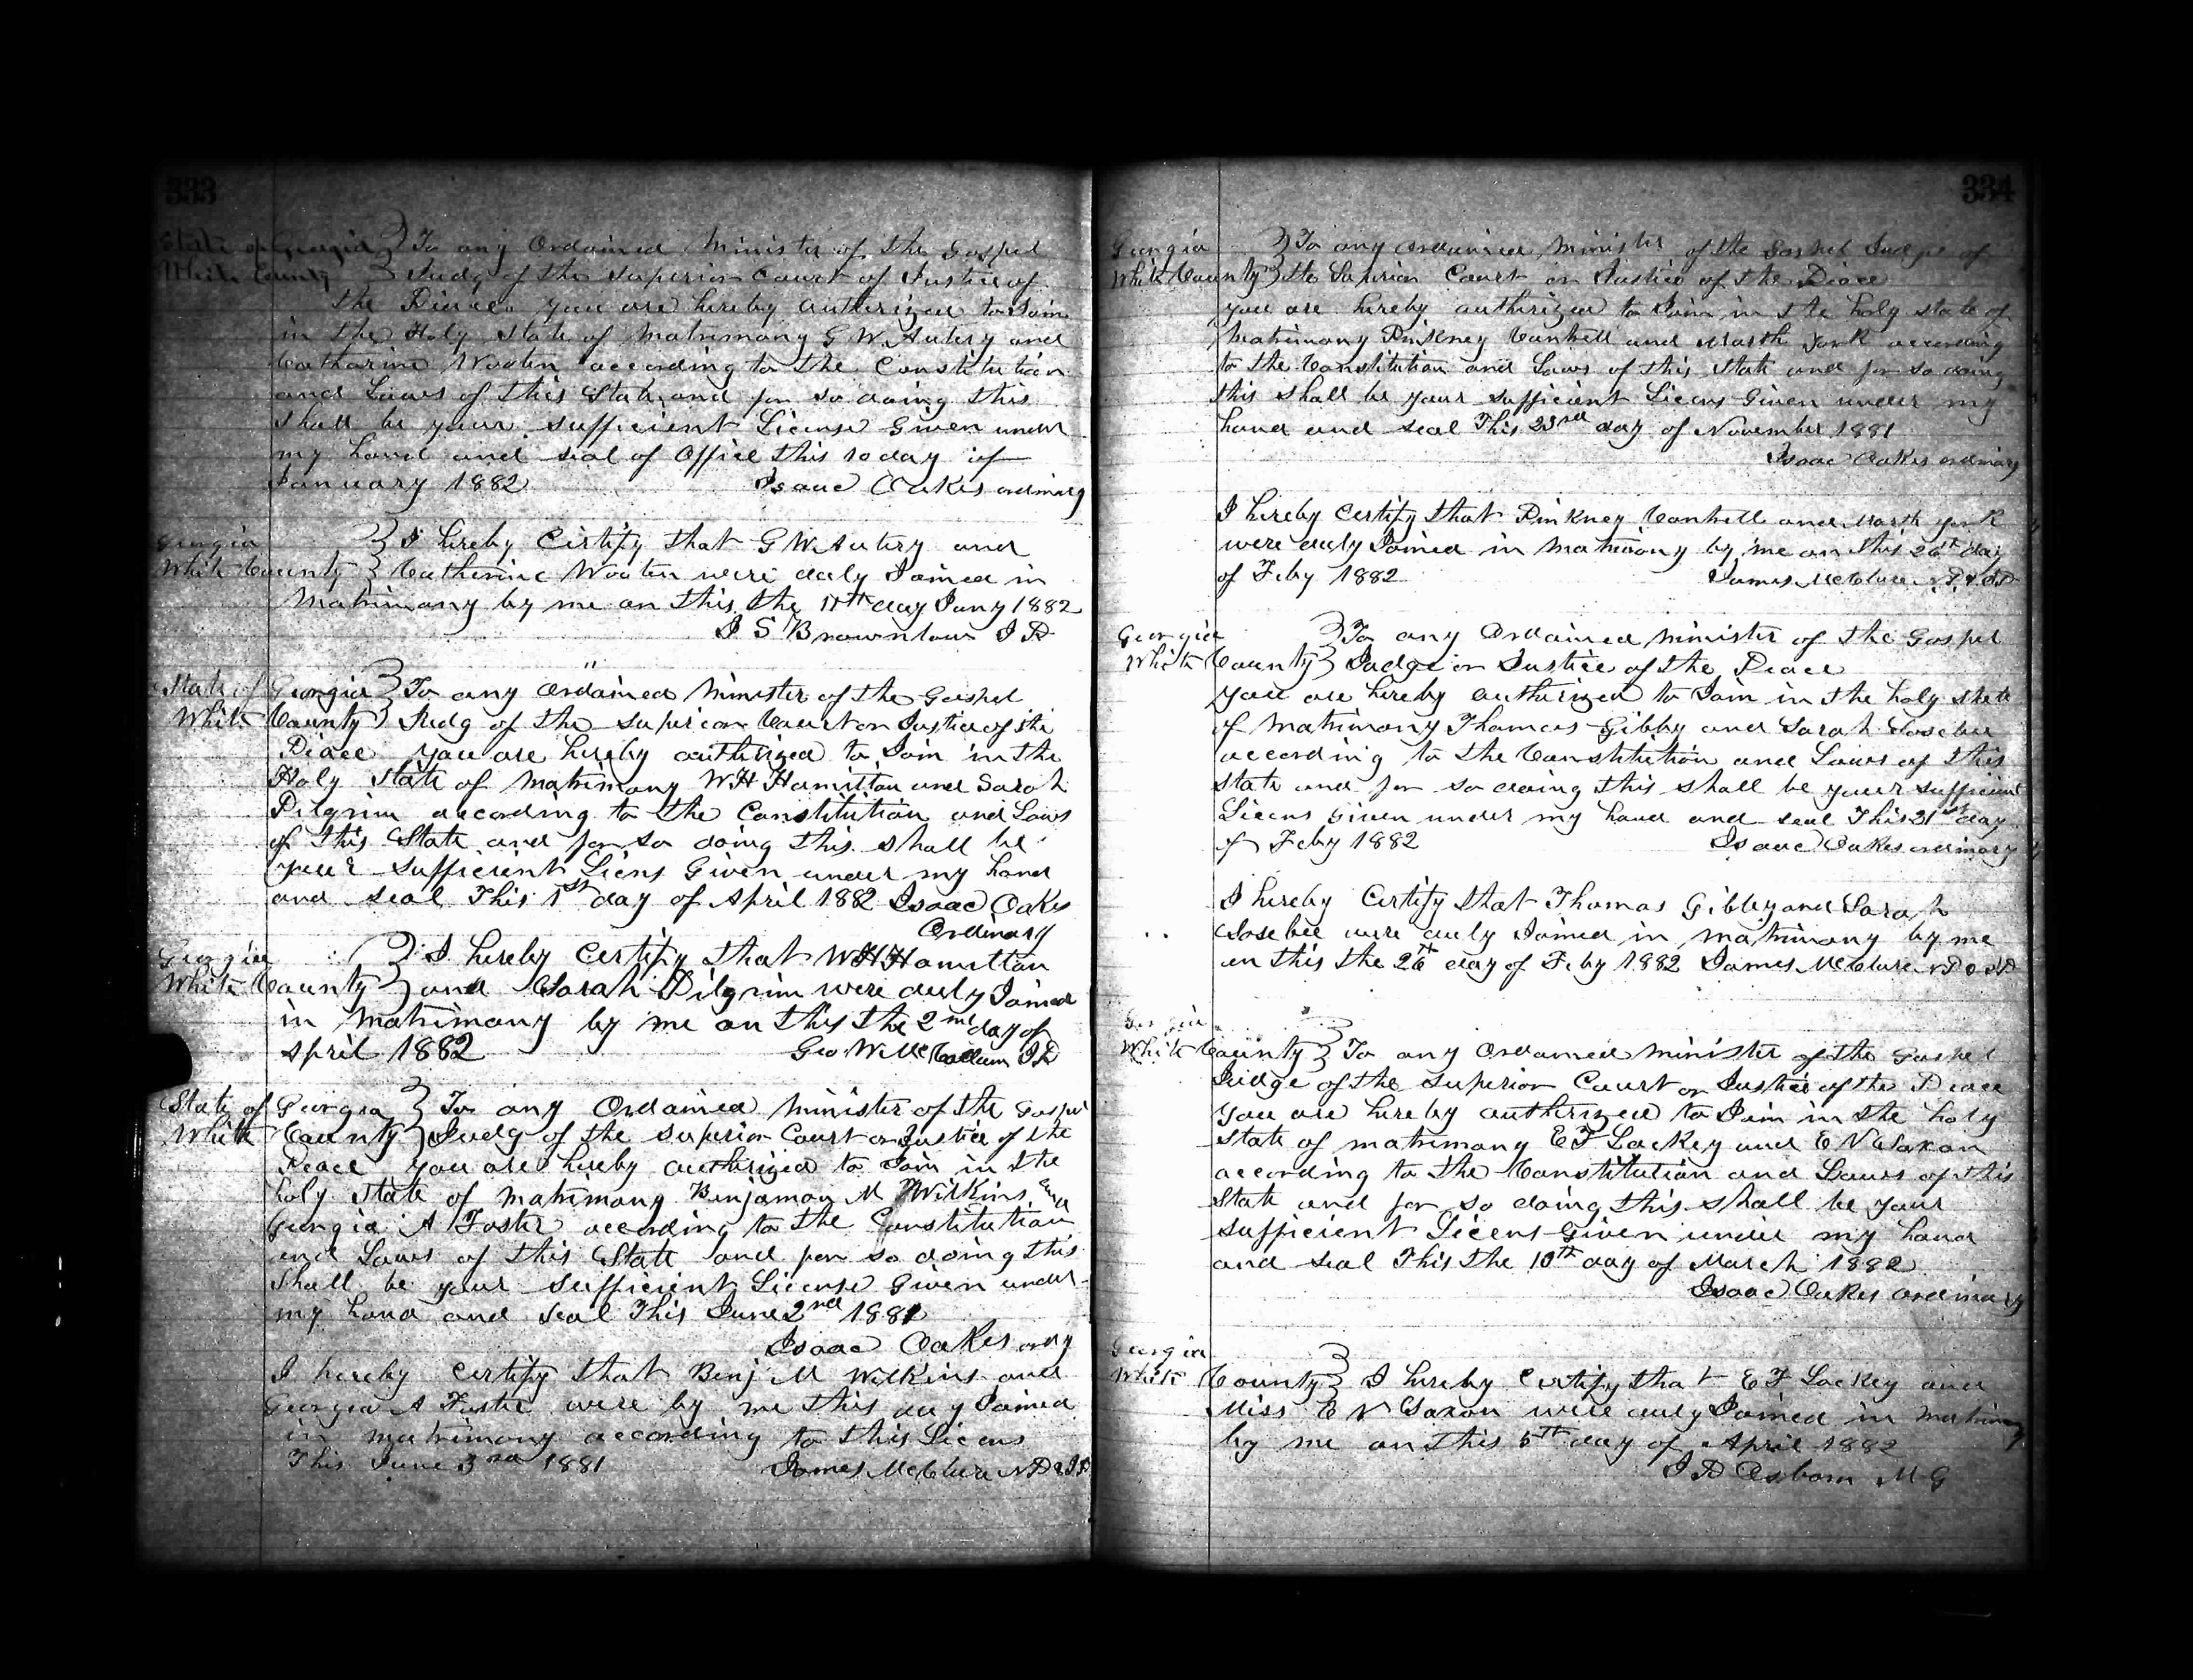 333
State of Georgia } To any Ordained Minister of the Gospel
White County } Judg of the Superior Court of Justice of
the Peace you are hereby authorized to Join
in the Holy State of Matrimony G W Autery and
Catharine Wooten according to the Constitution
and Laws of this State and for so doing this
shall be your sufficient License Given under
my hand and seal of Office this 10 day of
January 1882 Isaac Oakes ordinary
Georgia } I hereby Certify that G W Autery and
White County } Catherine Wooten were duly Joined in
Matrimony by me on this the 11th day Jany 1882
J S Brownlow J P
State of Georgia } To any Ordained Minister of the Gospel
White County } Judg of the Superior Court or Justice of the
Peace you are hereby authorized to Join in the
Holy State of Matrimony W H Hamilton and Sarah
Pilgrim according to the Constitution and Laws
of this State and for so doing this shall be
your sufficient Licens Given under my hand
and seal This 1st day of April 1882 Isaac Oakes
Ordinary
Georgia } I hereby Certify that W H Hamilton
White County } and Sarah Pilgrim were duly Joined
in Matrimony by me on this the 2nd day of
April 1882 Geo. W. McCollum J P
State of Georgia } To any Ordained Minister of the Gospel
White County } Judg of the Superior Court or Justice of the
Peace you are hereby authorized to Join in the
holy State of Matrimony Benjaman M Wilkins and
Georgia A Foster according to the Constitution
and Laws of this State and for so doing this
Shall be your Sufficient License Given under
my hand and seal This June 2nd 1881
Isaac Oakes ordy
I hereby Certify that Benj M Wilkins and
Georgia A Foster were by me this day Joined
in matrimony according to this Licens
This June 3rd 1881 James McClure N P & J P
334
Georgia } To any Ordained Minister of the Gospel Judge of
White County } the Suprior Court or Justice of the Peace
you are hereby authorized to Join in the holy state of
Matrimony Pinkney Cantrell and Marth York according
to the Constitution and Laws of this State and for so doing
this shall be your sufficient Licens Given under my
hand and seal This 23rd day of November 1881
Isaac Oakes ordinary
I hereby Certify that Pinkney Cantrell and Marth York
were duly Joined in Matrimony by me on this 26th day
of Feby 1882 James McClure N P & J P
Georgia } To any Ordained Minister of the Gospel
White County } Judge or Justice of the Peace
you are hereby authorized to Join in the holy state
of Matrimony Thomas Gibby and Sarah Losebee
according to the Constitution and Laws of this
state and for so doing this shall be your sufficient
Licens Given under my hand and seal This 21st day
of Feby 1882 Isaac Oakes ordinary
I hereby Certify that Thomas Gibby and Sarah
Losebee were duly Joined in matrimony by me
on this the 26th day of Feby 1882 James McClure N P & J P
Georgia
White County } To any Ordained Minister of the Gospel
Judge of the Superior Court or Justice of the Peace
you are hereby authorized to Join in the holy
State of matrimony E F Lackey and E N Saxon
according to the Constitution and Laws of this
State and for so doing this shall be your
sufficient Licens Given under my hand
and seal This the 10th day of March 1882
Isaac Oakes ordinary
Georgia
White County } I hereby Certify that E F Lackey and
Miss E N Saxon were duly Joined in matrimony
by me on this 5th day of April 1882
J P Osborn M G